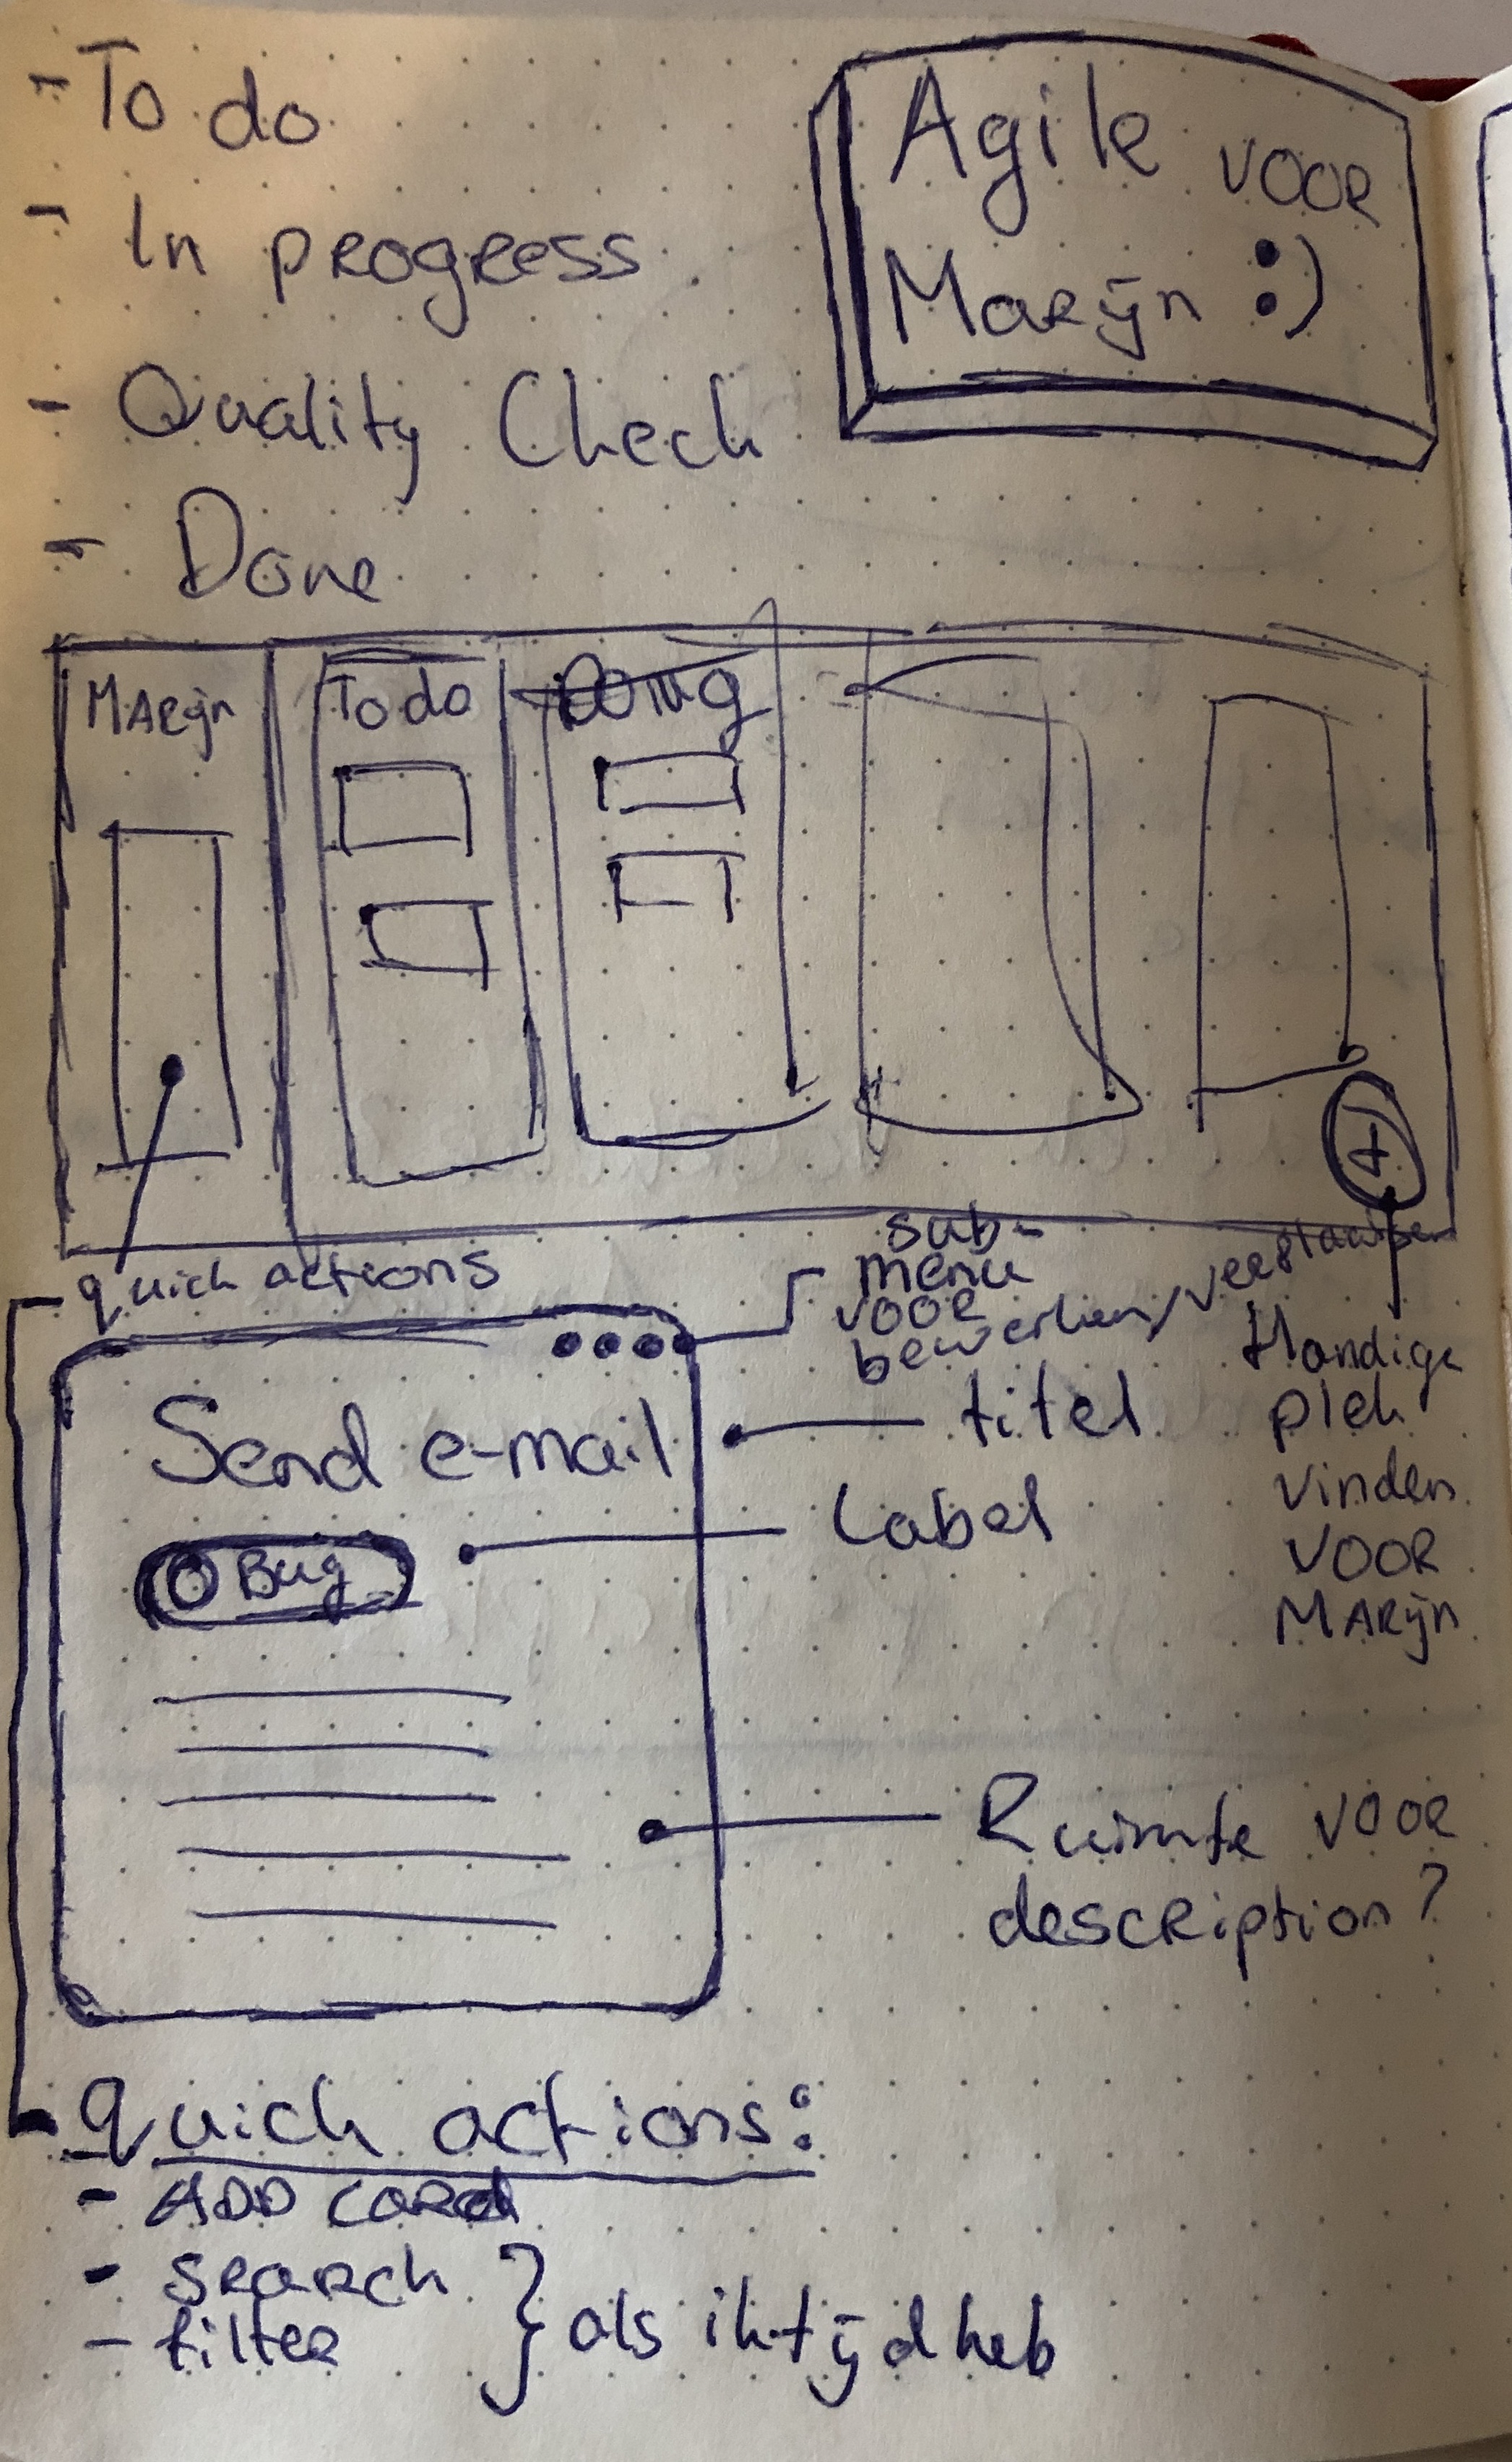 - To do
- In progress
- Quality Check
- Done
Agile voor
Marijn :)
Marijn
To do
Doing
+
quick actions
sub-
menu
voor
bewerken/verplaatsen
Handige
plek
vinden
voor
Marijn
Send e-mail
titel
Bug
Label
Ruimte voor
description?
quick actions:
- ADD card
- search
- filter
} als ik tijd heb